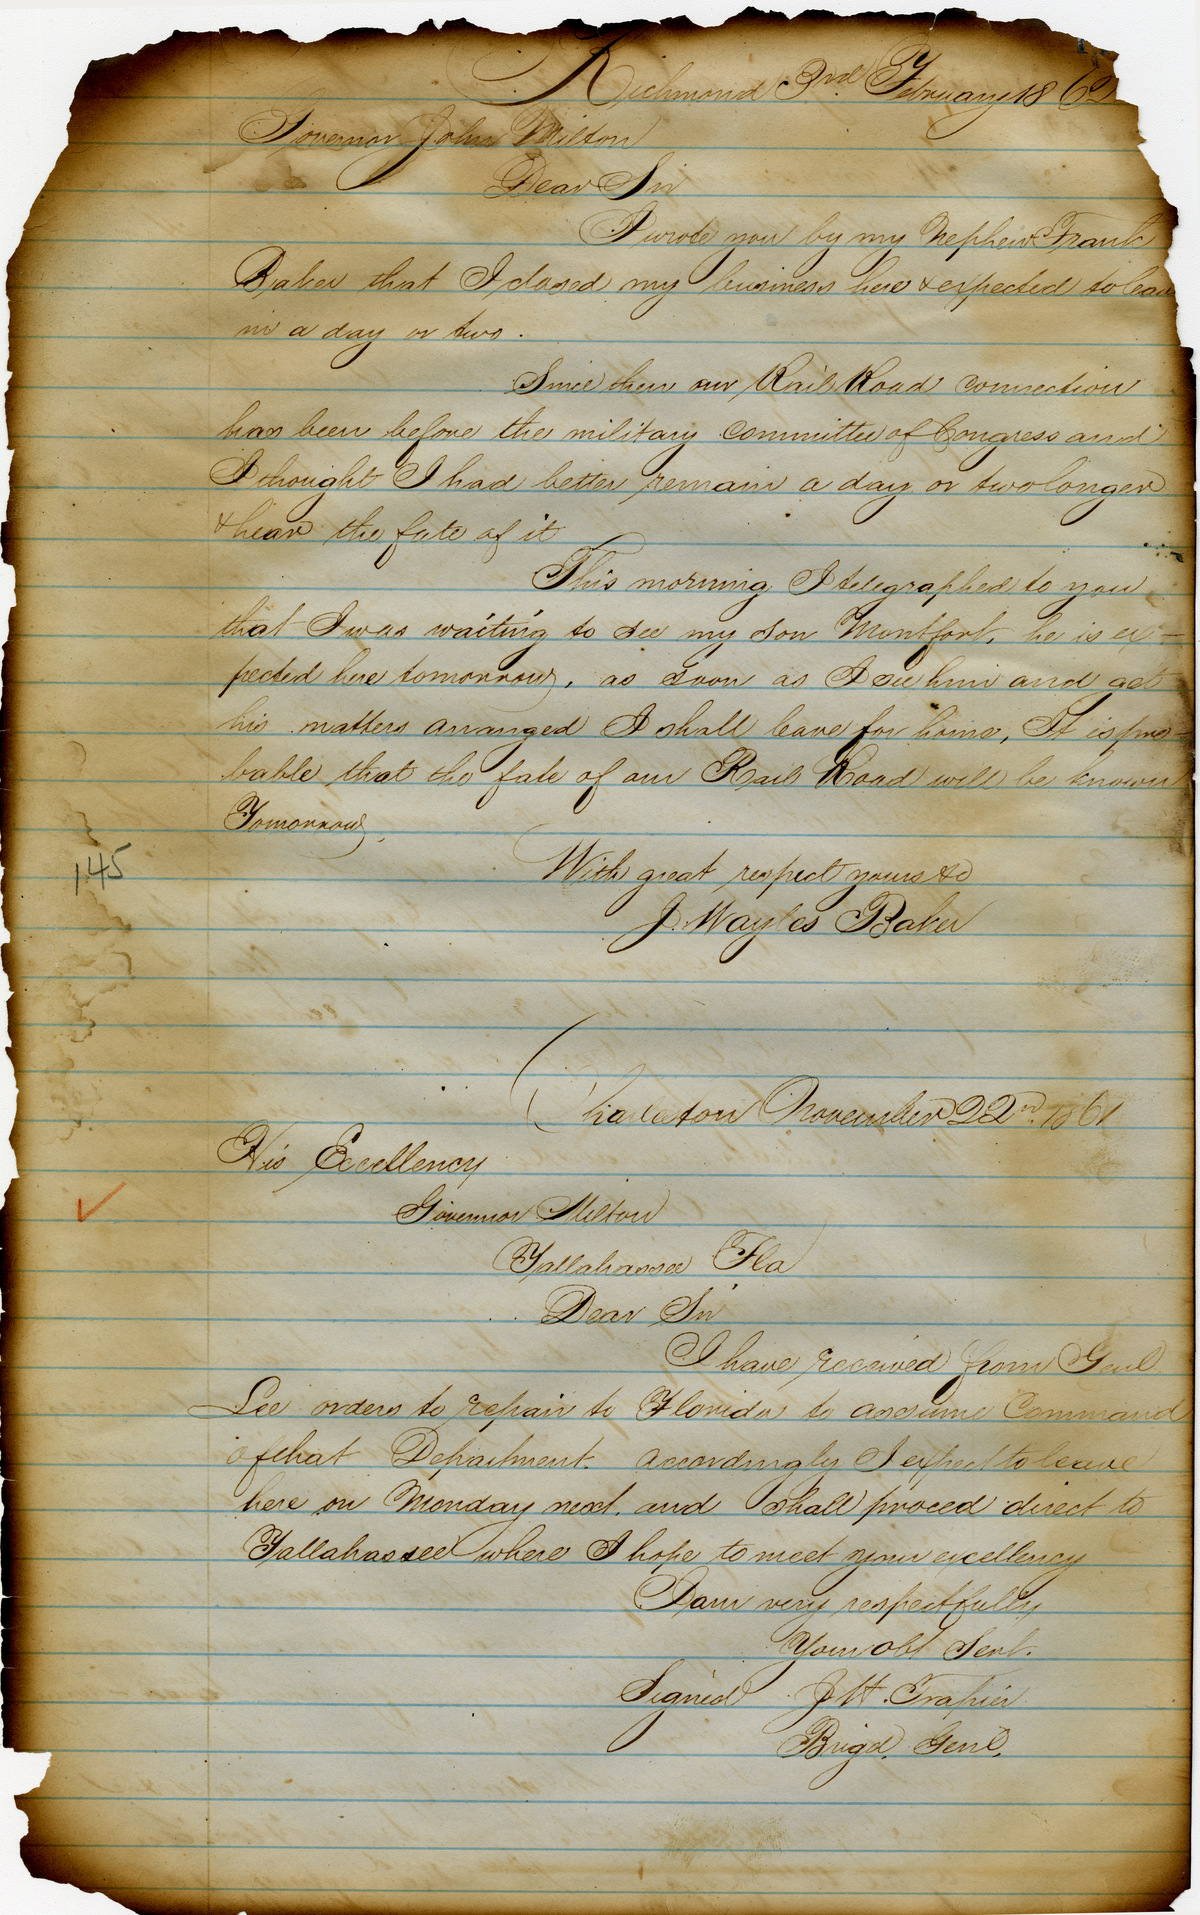 Richmond 3rd February 1862
Governor John Milton
Dear Sir
I wrote you by my Nephew Frank
Baker that I closed my business here & expected to leave
in a day or two.
Since then our Rail Road connection
has been before the military committee of Congress and
I thought I had better remain a day or two longer
& hear the fate of it
This morning I telegraphed to you
that I was waiting to see my son Montfort, he is ex-
pected here tomorrow, as soon as I see him and get
his matters arranged I shall leave for home, It is pro-
bable that the fate of our Rail Road will be known
Tomorrow,
145
With great respect yours &c
J. Wayles Baker
Charleston November 22nd 1861
His Excellency
Governor Milton
Tallahassee Fla
Dear Sir
I have received from Genl
Lee orders to repair to Florida to assume Command
of that Department. accordingly I expect to leave
here on Monday next. and shall proceed direct to
Tallahassee where I hope to meet your excellency
I am very respectfully
Your obt Servt.
Signed J H. Trapier
Brigd. Genl.